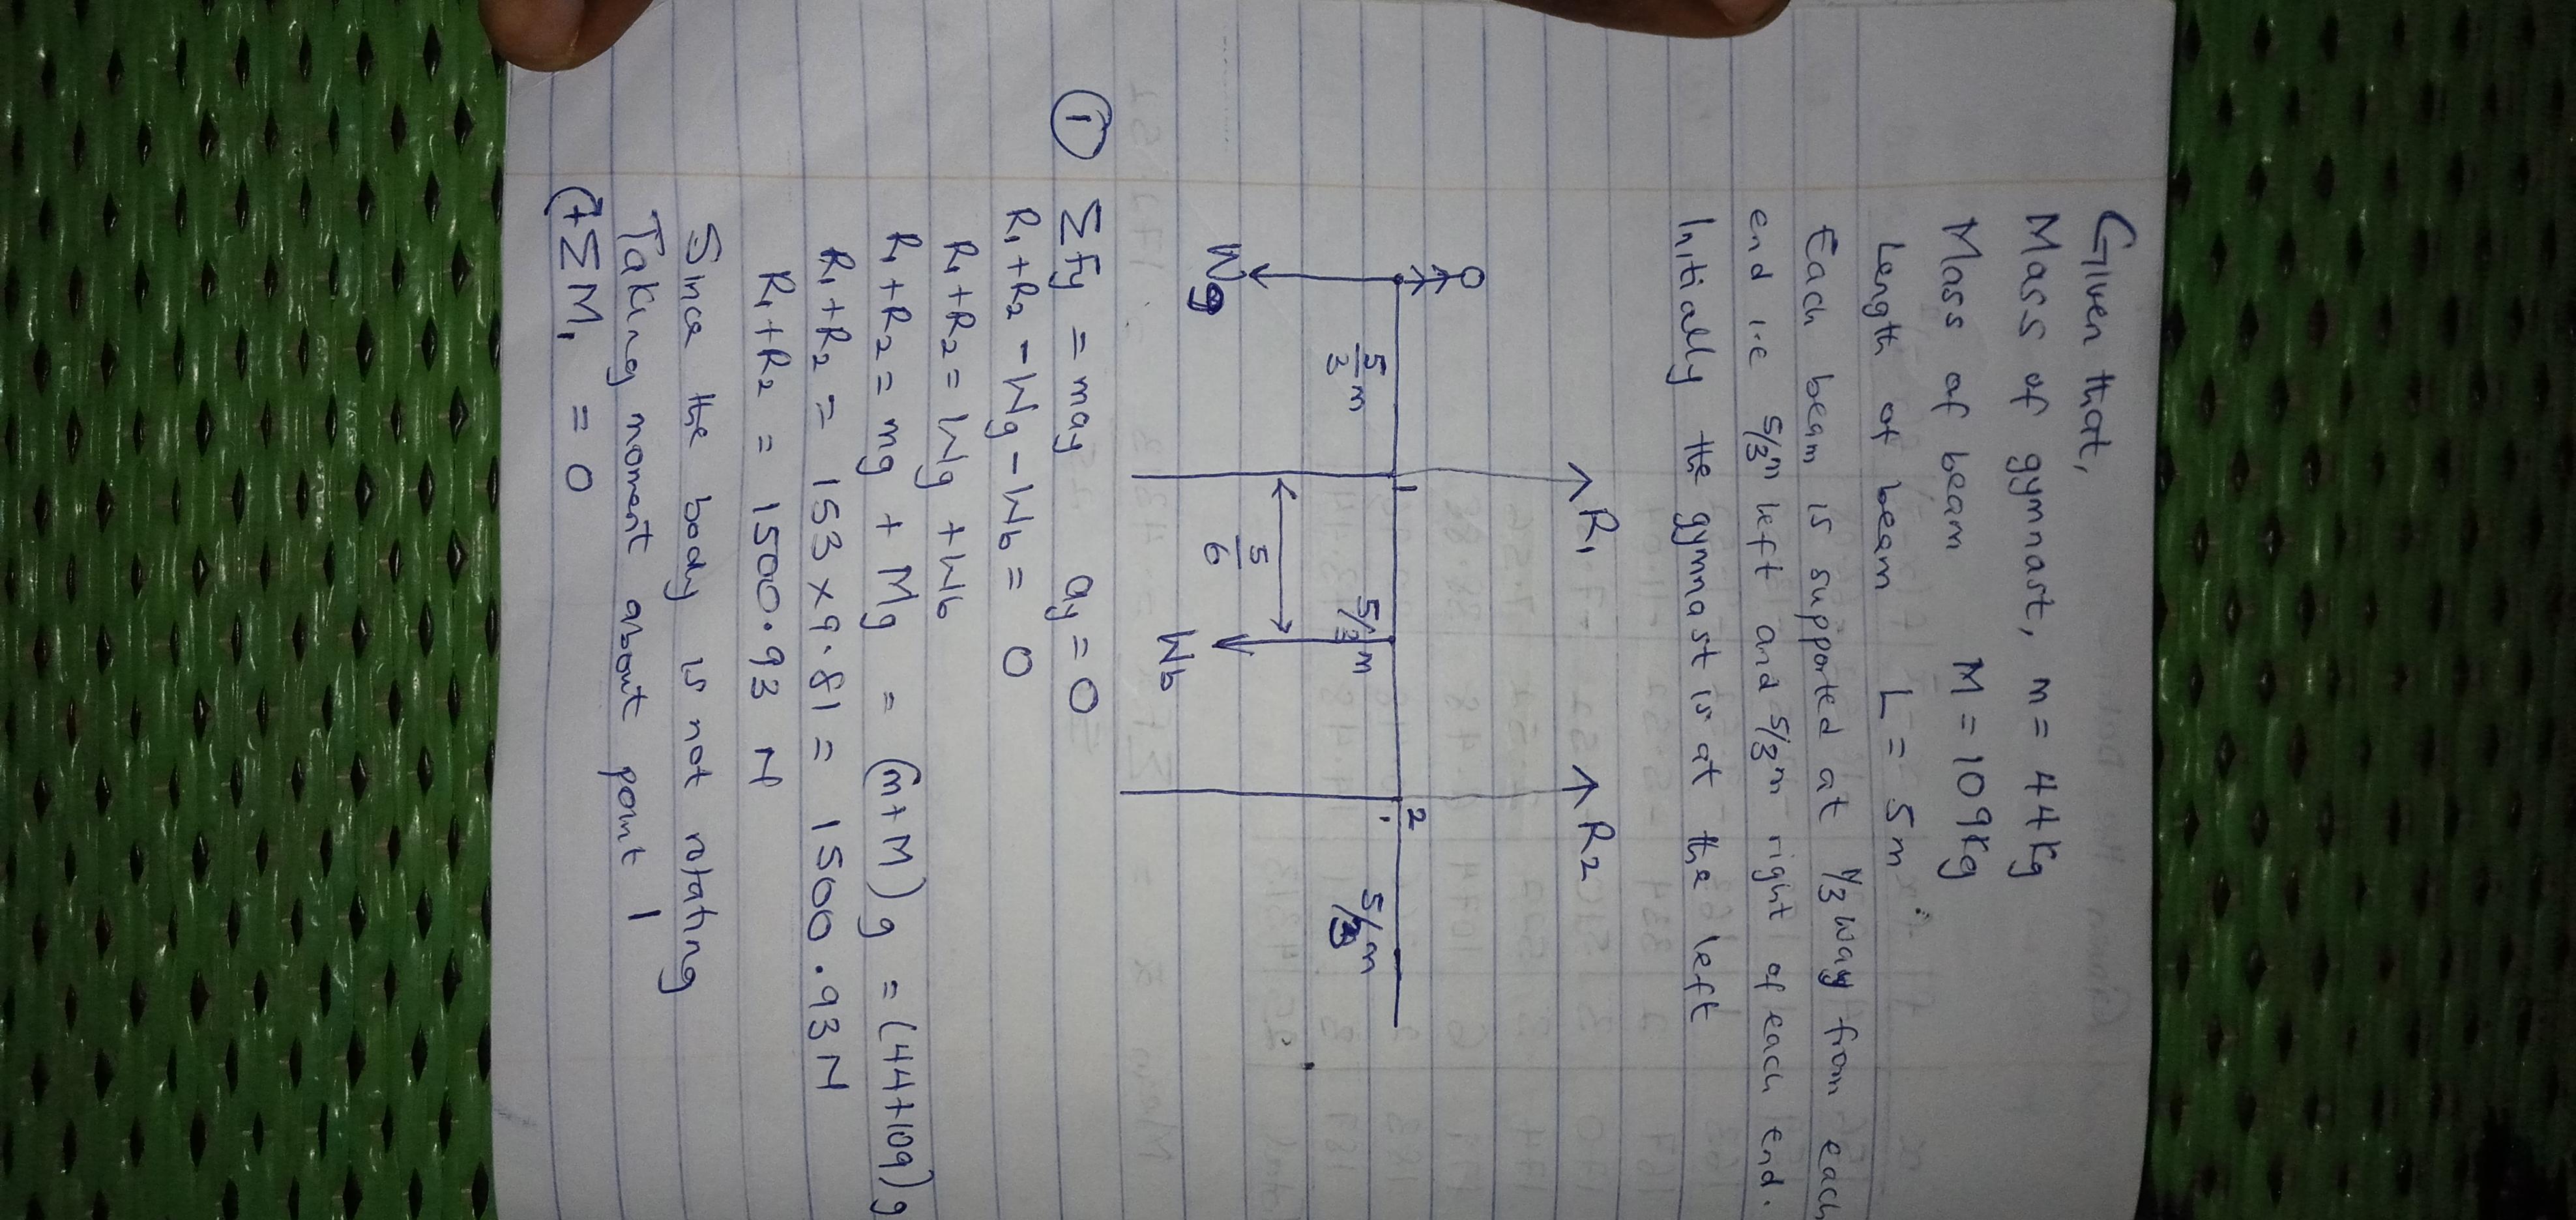 Given that,
Mass of gymnast, m = 44kg
Mass of beam M = 109kg
Length of beam L = 5m
Each beam is supported at 1/3 way from each
end i.e 5/3m left and 5/3m right of each end.
Initially the gymnast is at the left
R1 R2
1 2
5/3 m 5/3 m 5/3 m
5/6
Wg Wb
① ΣFy = may ay = 0
R1 + R2 - Wg - Wb = 0
R1 + R2 = Wg + Wb
R1 + R2 = mg + Mg = (m+M)g = (44+109)g
R1 + R2 = 153 x 9.81 = 1500.93N
R1 + R2 = 1500.93 N
Since the body is not rotating
Taking moment about point 1
+ΣM1 = 0